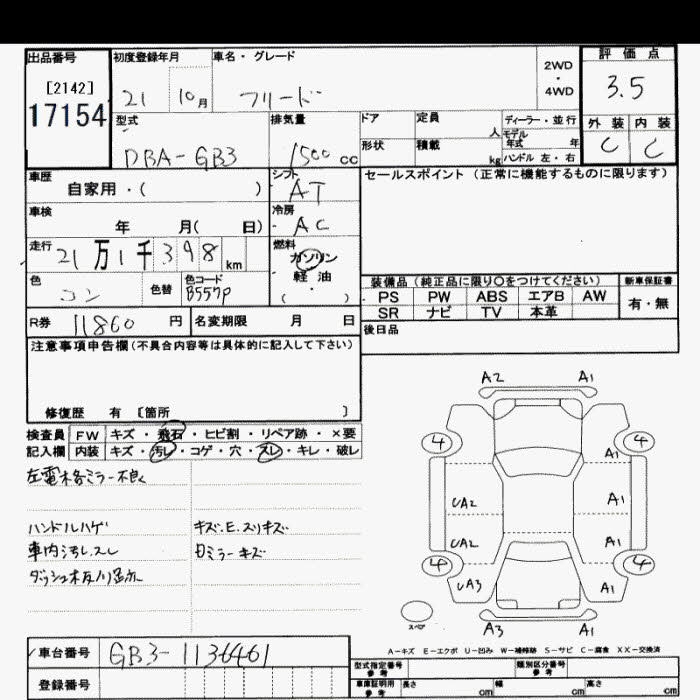 出品番号 初度登録年月 車名・グレード 2WD・4WD 評価点
[2142] 17154 21 10月 フリード 3.5
型式 排気量 ドア 定員 人 ディーラー・並行 外装 内装
DBA-GB3 1500cc 形状 積載 kg モデル年式 年 ハンドル 左・右 C C
車歴 自家用・( ) シフト AT セールスポイント (正常に機能するものに限ります)
車検 年 月( 日) 冷房 AC
走行 21万1千398km 燃料 ガソリン 軽油 ( ・ )
色 コン 色替 色コード B557P
装備品 (純正品に限り○をつけてください) 新車保証書
PS PW ABS エアB AW 有・無
SR ナビ TV 本革
R券 11860円 名変期限 月 日 後日品
注意事項申告欄(不具合内容等は具体的に記入して下さい)
修復歴 有 [箇所 ]
検査員 FW キズ・飛石・ヒビ割・リペア跡・×要
記入欄 内装 キズ・汚レ・コゲ・穴・スレ・キレ・破レ
左電格ミラー不良
ハンドルハゲ キズ.E.スリキズ
車内汚レ.スレ
A2 A1
4 4
A1
UA2 A1
UA2 A1
4 4
UA3 A1
A3 A1
スペア
A−キズ E−エクボ U−凹み W−補修跡 S−サビ C−腐食 XX−交換済
車台番号 GB3-1136461
登録番号
型式指定番号 参考 類別区分番号 参考
車庫証明用 参考 長さ cm 幅 cm 高さ cm